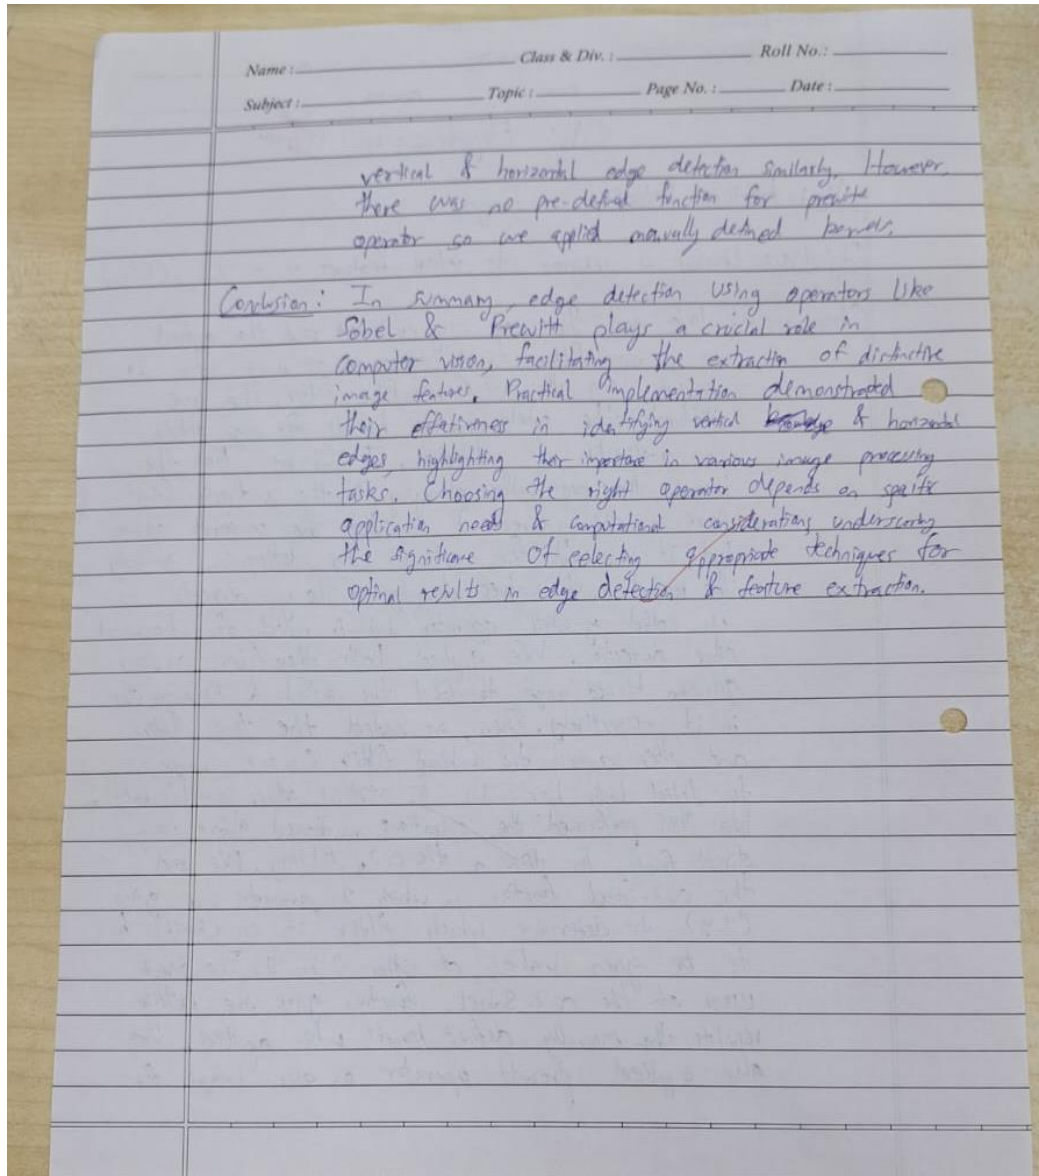 Name : Class & Div. : Roll No.:
Subject : Topic : Page No. : Date :
vertical & horizontal edge detection similarly. However,
there was no pre-defined function for prewitt
operator so we applied manually defined kernels.
Conclusion: In summary, edge detection using operators like
Sobel & Prewitt plays a crucial role in
computer vision, facilitating the extraction of distinctive
image features. Practical implementation demonstrated
their effectiveness in identifying vertical & horizontal
edges, highlighting their importance in various image processing
tasks. Choosing the right operator depends on specific
application needs & computational considerations, underscoring
the significance of selecting appropriate techniques for
optimal results in edge detection & feature extraction.